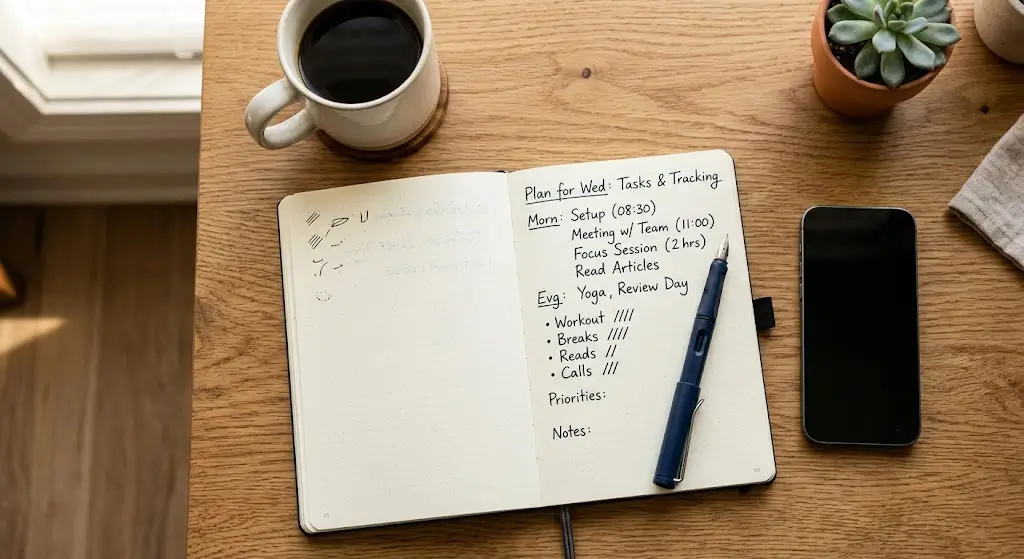 Plan for Wed: Tasks & Tracking
Morn: Setup (08:30)
Meeting w/ Team (11:00)
Focus Session (2 hrs)
Read Articles
Evg: Yoga, Review Day
• Workout ////
• Breaks ////
• Reads //
• Calls ///
Priorities:
Notes: